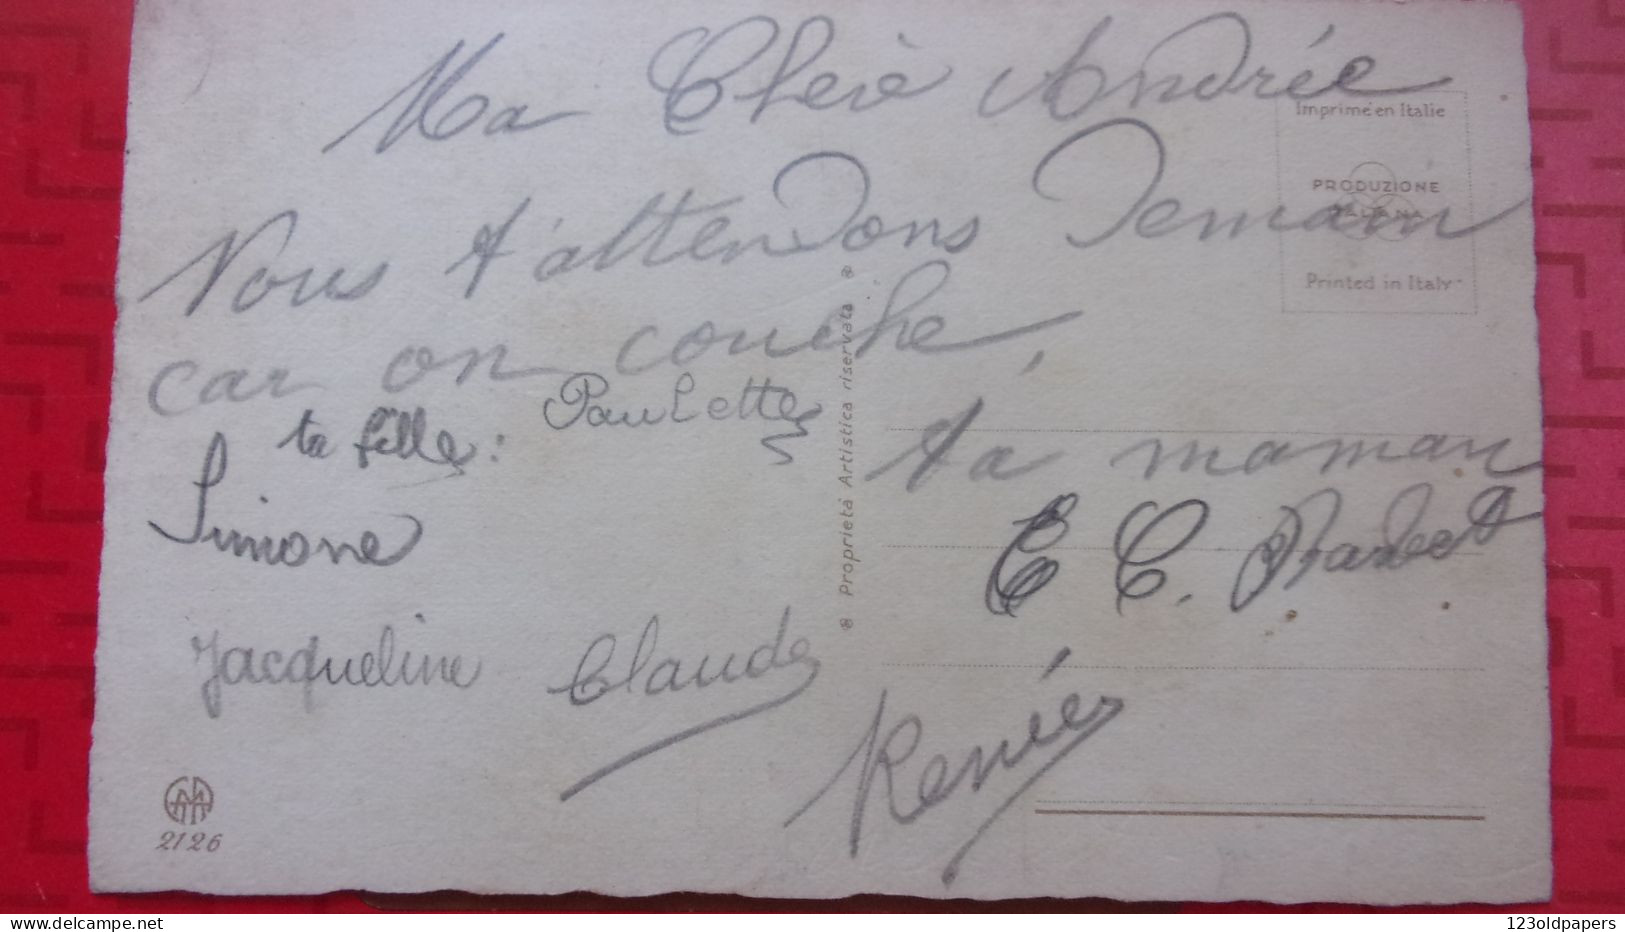 Ma Cherè Andrée
Nous t'attendons Demain
car on couche,
ta fille : Paulette
Simone
Jacqueline Claude
ta maman
E C.
Renée
Imprimé en Italie
PRODUZIONE
ITALIANA
Printed in Italy
® Proprietà Artistica riservata ®
2126
123oldpapers